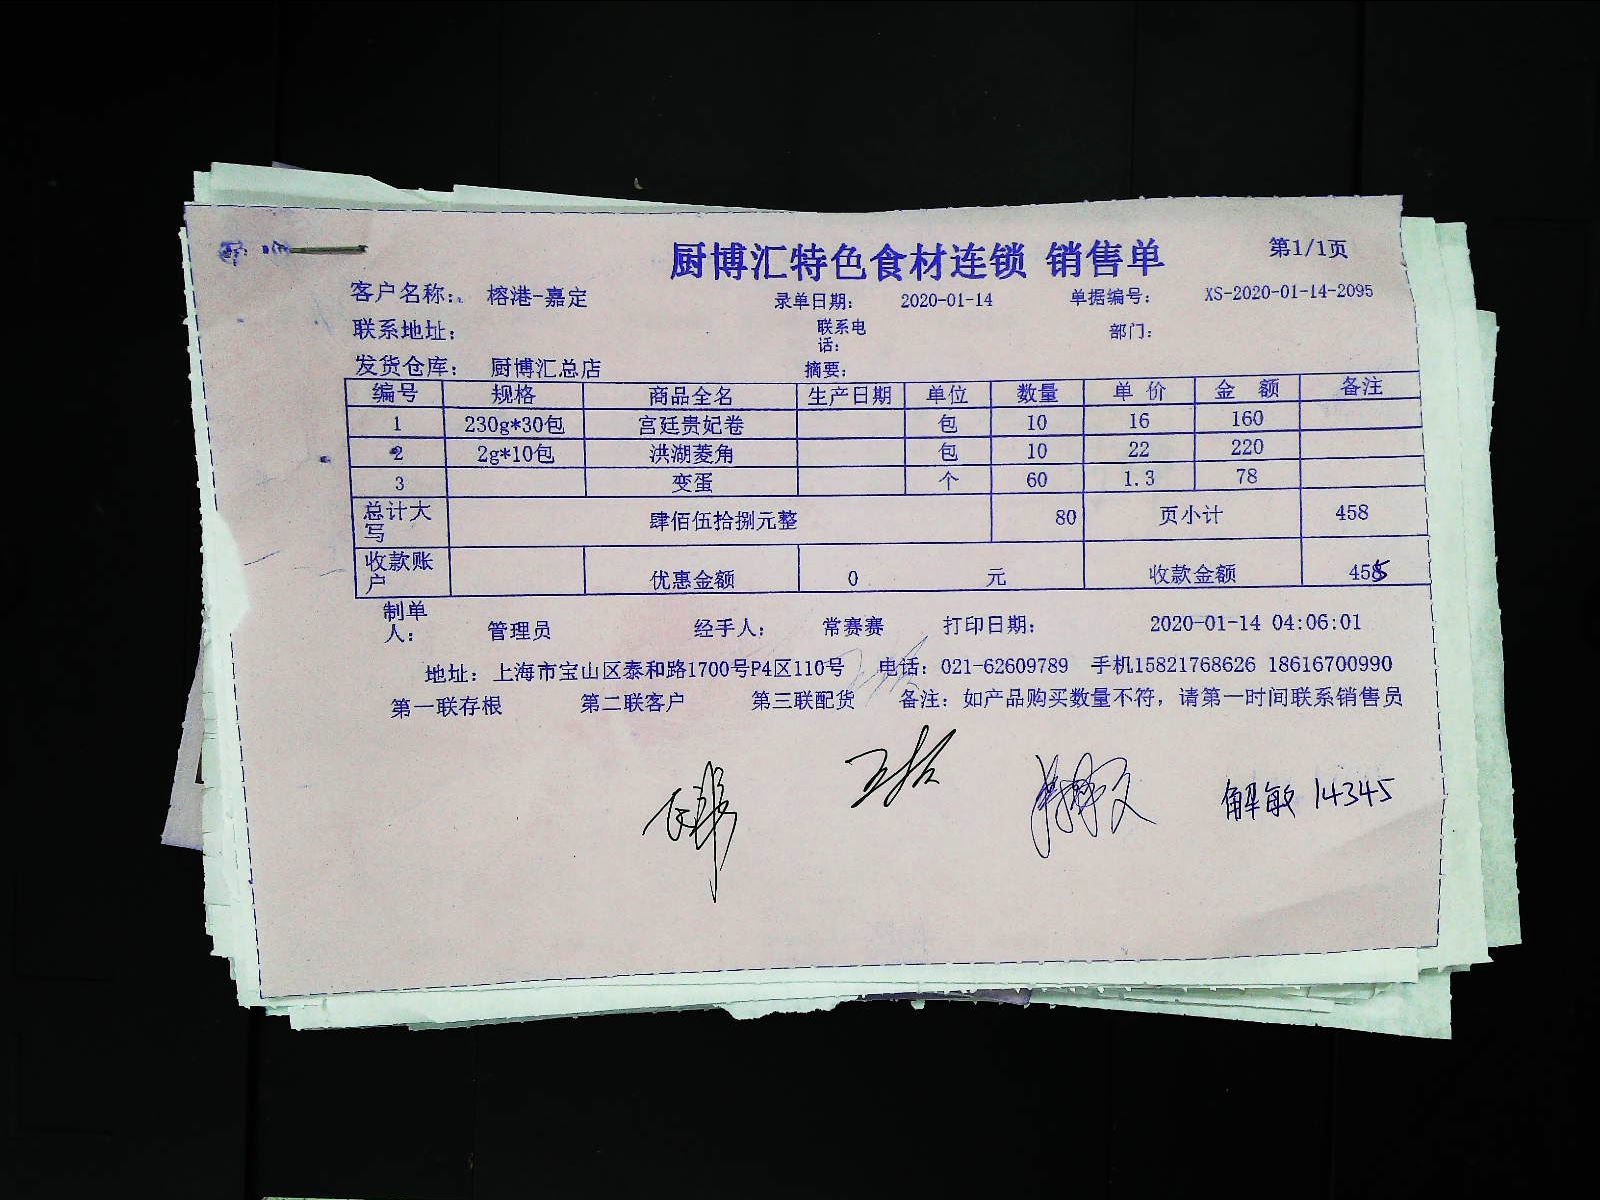 厨博汇特色食材连锁 销售单 第1/1页
客户名称: 榕港-嘉定 录单日期: 2020-01-14 单据编号: XS-2020-01-14-2095
联系地址: 联系电话: 部门:
发货仓库: 厨博汇总店 摘要:
编号 规格 商品全名 生产日期 单位 数量 单价 金额 备注
1 230g*30包 宫廷贵妃卷 包 10 16 160
2 2g*10包 洪湖菱角 包 10 22 220
3 变蛋 个 60 1.3 78
总计大写 肆佰伍拾捌元整 80 页小计 458
收款账户 优惠金额 0 元 收款金额 455
制单人: 管理员 经手人: 常赛赛 打印日期: 2020-01-14 04:06:01
地址: 上海市宝山区泰和路1700号P4区110号 电话: 021-62609789 手机15821768626 18616700990
第一联存根 第二联客户 第三联配货 备注: 如产品购买数量不符, 请第一时间联系销售员
解敏 14345